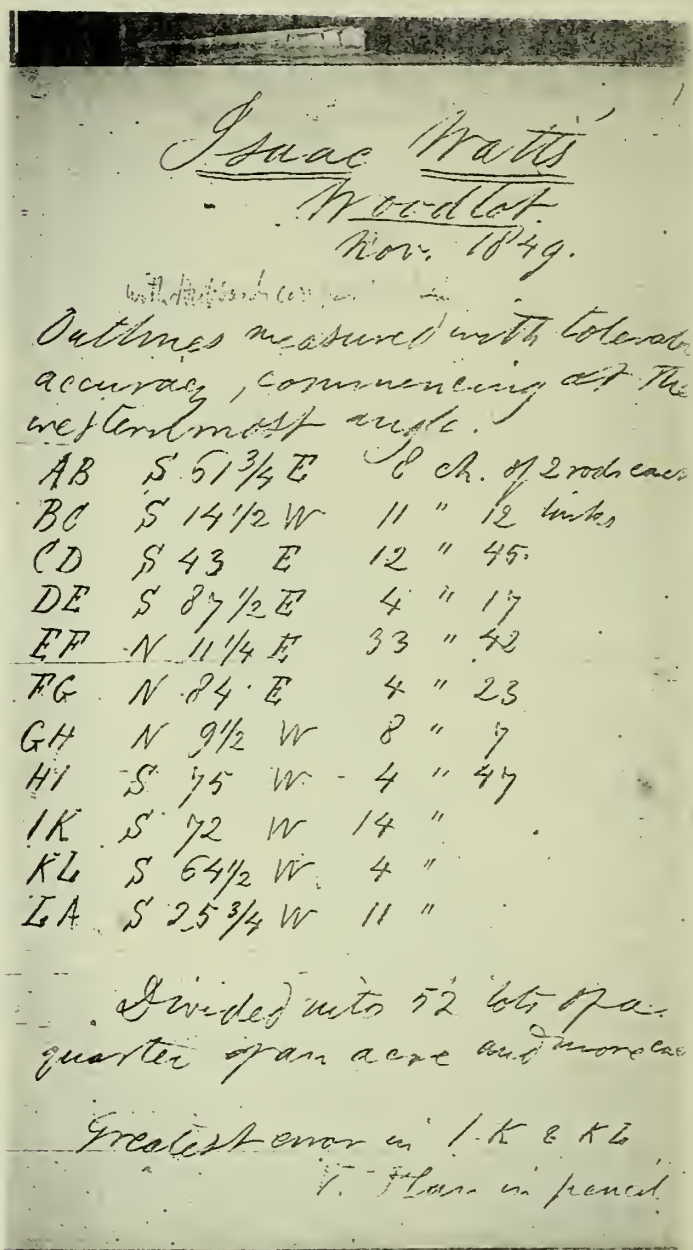 Isaac Watts'
Woodlot.
Nov. 1849.
with
Outlines measured with tolerab
accuracy, commencing at the
westernmost angle.
AB S 51 3/4 E 8 ch. of 2 rods each
BC S 14 1/2 W 11 " 12 links
CD S 43 E 12 " 45.
DE S 87 1/2 E 4 " 17
EF N 11 1/4 E 33 " 42
FG N 84 E 4 " 23
GH N 9 1/2 W 8 " 7
HI S 75 W 4 " 47
IK S 72 W 14 "
KL S 64 1/2 W 4 "
LA S 25 3/4 W 11 "
Divided into 52 lots of a
quarter of an acre and more each
Greatest error in IK & KL
V. Plan in pencil